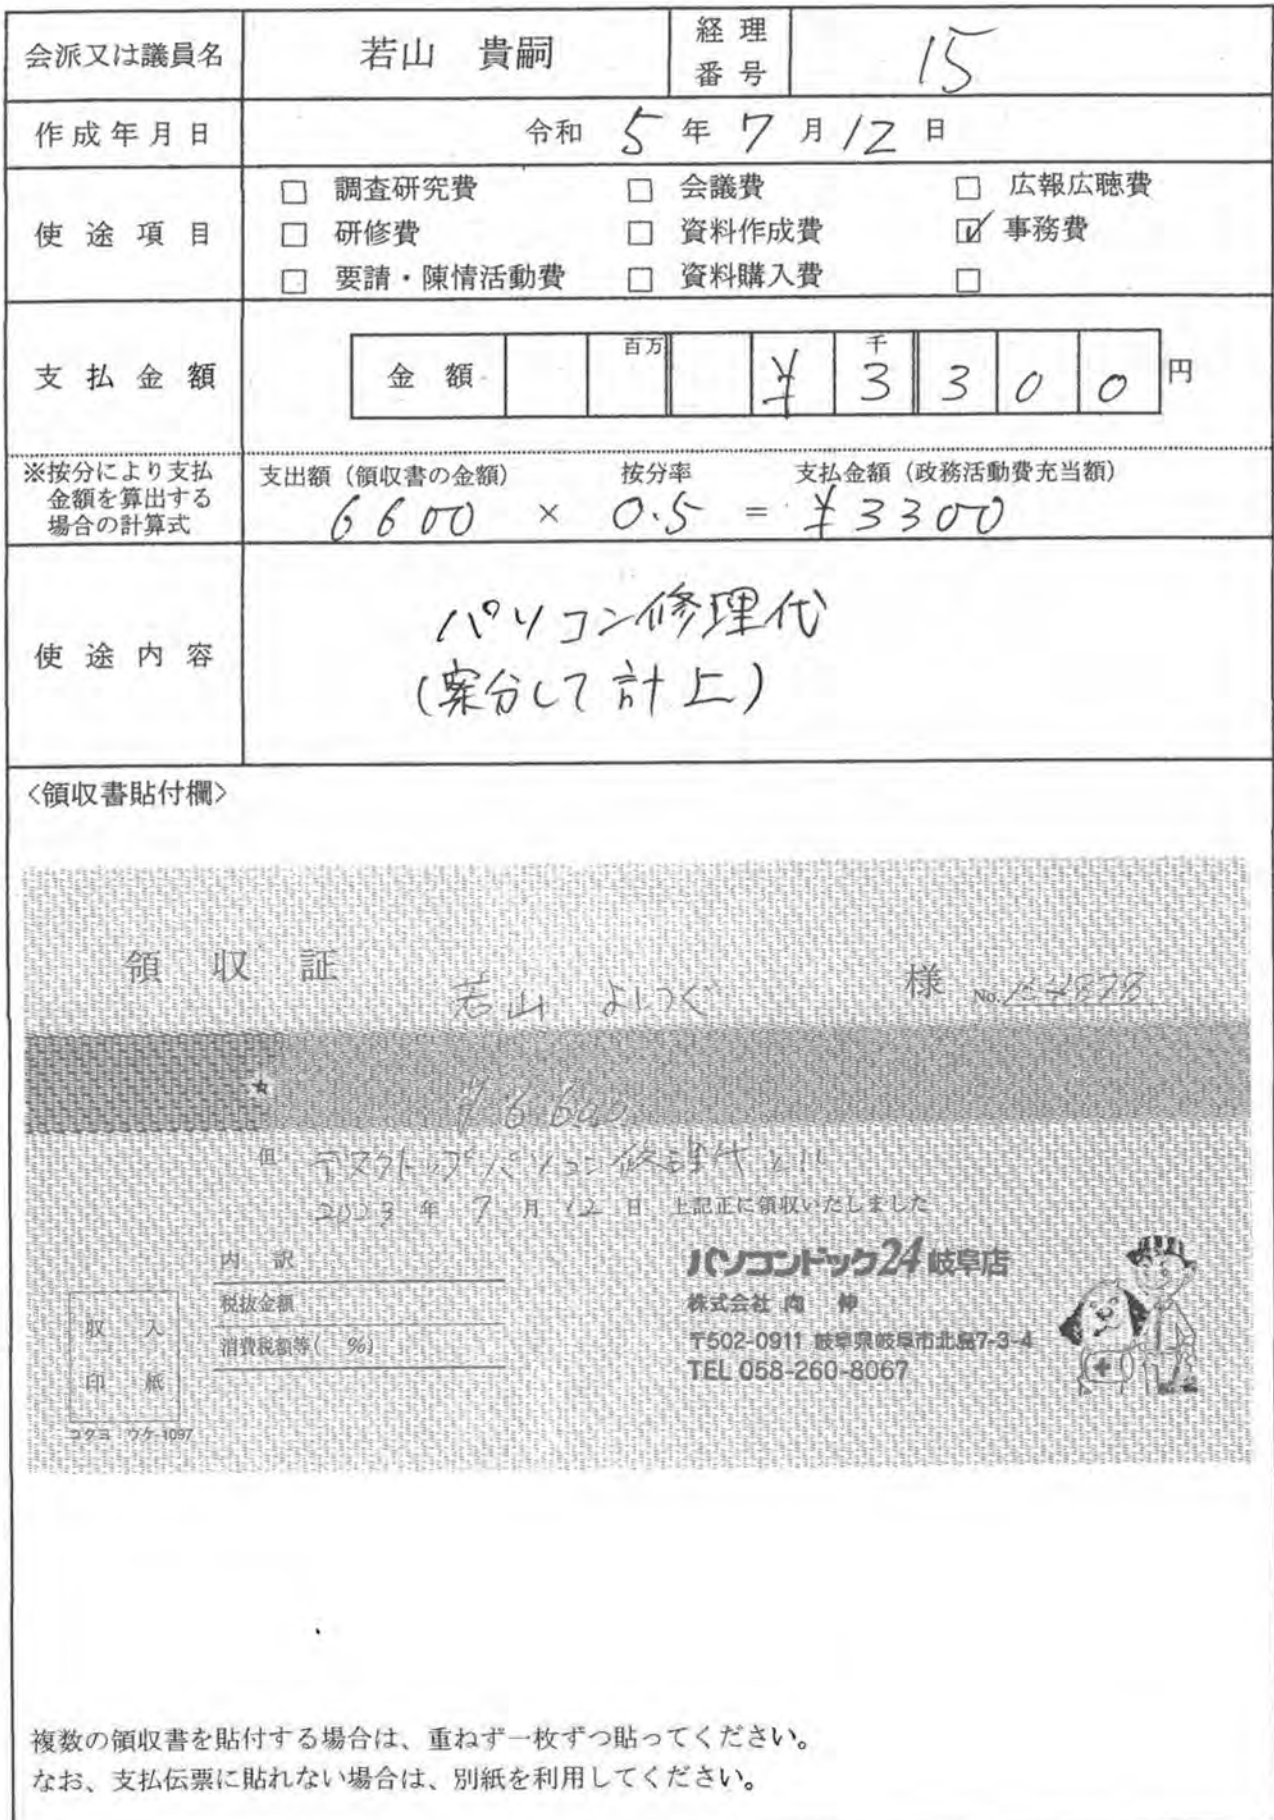 会派又は議員名 若山 貴嗣 経理番号 15
作成年月日 令和 5 年 7 月 12 日
使途項目
□ 調査研究費 □ 会議費 □ 広報広聴費
□ 研修費 □ 資料作成費 ☑ 事務費
□ 要請・陳情活動費 □ 資料購入費 □
支払金額 金額 百万 千 ¥3300 円
※按分により支払金額を算出する場合の計算式
支出額（領収書の金額） 按分率 支払金額（政務活動費充当額）
6600 × 0.5 = ¥3300
使途内容
パソコン修理代
(案分して計上)
<領収書貼付欄>
領収証
若山 よしつぐ 様 No.
★
¥6,600
但 デスクトップパソコン修理代
2023 年 7 月 12 日 上記正に領収いたしました
内訳
税抜金額
消費税額等( %)
収入印紙
コクヨ ウケ-1097
パソコンドック24 岐阜店
株式会社
〒502-0911 岐阜県岐阜市北島7-3-4
TEL 058-260-8067
複数の領収書を貼付する場合は、重ねず一枚ずつ貼ってください。
なお、支払伝票に貼れない場合は、別紙を利用してください。